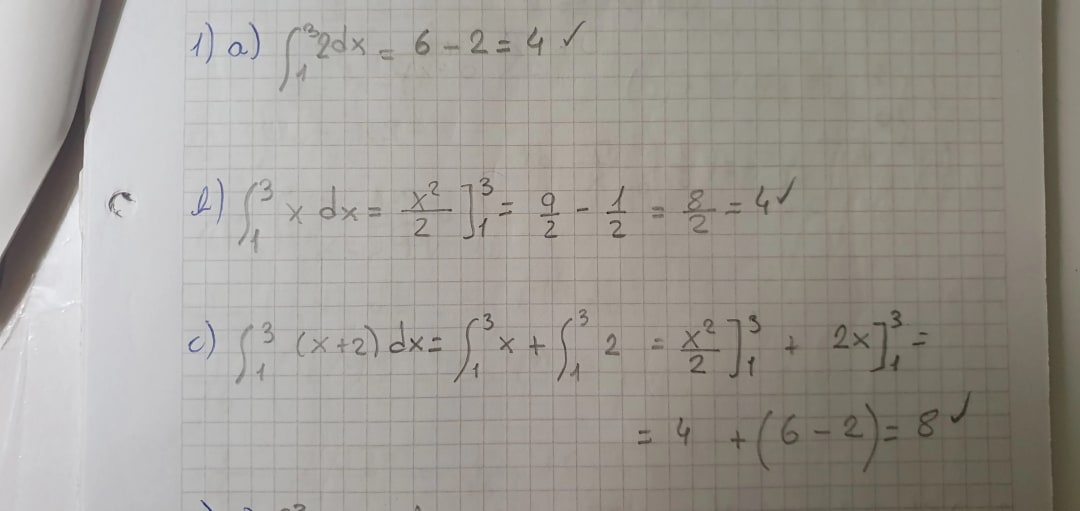 1) a) ∫₁³ 2dx = 6 - 2 = 4 ✓
b) ∫₁³ x dx = x²/2 ]₁³ = 9/2 - 1/2 = 8/2 = 4 ✓
c) ∫₁³ (x+2) dx = ∫₁³ x + ∫₁³ 2 = x²/2 ]₁³ + 2x ]₁³ =
= 4 + (6 - 2) = 8 ✓